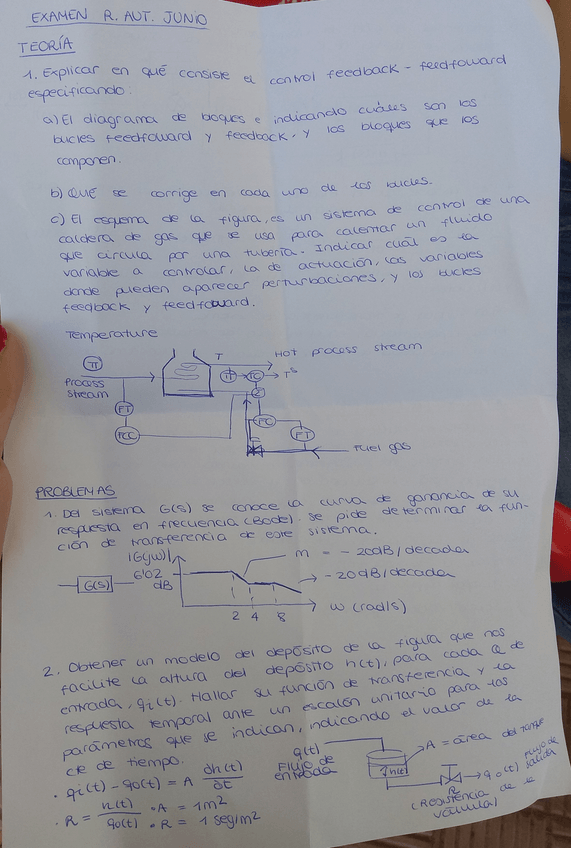 EXAMEN R. AUT. JUNIO
TEORÍA
1. Explicar en qué consiste el control feedback - feedfoward
especificando:
a) El diagrama de boques e indicando cuáles son los
bucles feedfoward y feedback, y los bloques que los
componen.
b) QUÉ se corrige en cada uno de los bucles.
c) El esquema de la figura, es un sistema de control de una
caldera de gas que se usa para calentar un fluido
que circula por una tubería. Indicar cuál es la
variable a controlar, la de actuación, las variables
donde pueden aparecer perturbaciones, y los bucles
feedback y feedfoward.
Temperature
TI
T
Hot process stream
Process
stream
TT
TC
Tˢ
Σ
FT
FCC
FC
FT
Fuel gas
PROBLEMAS
1 Del sistema G(s) se conoce la curva de ganancia de su
respuesta en frecuencia (Bode). Se pide determinar la fun-
ción de transferencia de este sistema.
|G(jw)|
m = - 20dB/decada
6'02
dB
G(s)
-20dB/decada
2 4 8
w (rad/s)
2. Obtener un modelo del depósito de la figura que nos
facilite la altura del depósito h(t), para cada Q de
entrada, qi(t). Hallar su función de transferencia y la
respuesta temporal ante un escalón unitario para los
parámetros que se indican, indicando el valor de la
cte de tiempo.
· qi(t) - qo(t) = A dh(t)/dt
· R = h(t)/qo(t) · A = 1m²
· R = 1 seg/m²
q(t)
Flujo de
entrada
A = área del tanque
h(t)
qo(t) Flujo de
salida
R
(Resistencia de la
válvula)